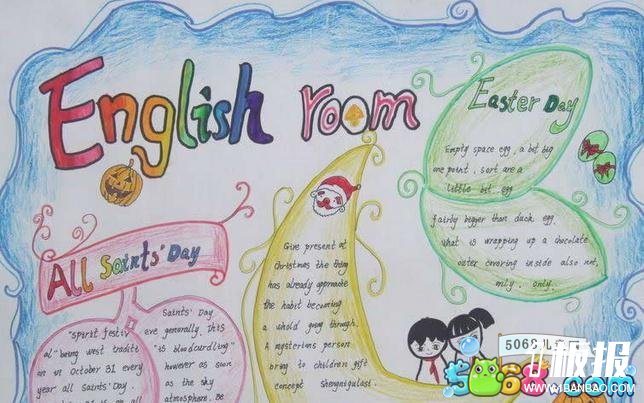 English room
Easter Day
Empty space egg, a bit big
one point, sort are a
little bit egg
fairly bigger than duck egg.
What is wrapping up a chocolate
outer covering inside also not
mily, only.
All Saints' Day
"Spirit festiv
al" being west tradite
on in October 31 every
year all Saints' Day.
Saints' Day
eve generally. This
"is bloodcurdling"
however as soon
as the sky
atmosphere. Be
Give present at
Christmas the thing
has already appromate
the habit becoming
a whold going through.
A mysterious person
bring to children gift
concept Shengnigulasi.
5068儿
板报
5068
WWW.1BANBAO.COM